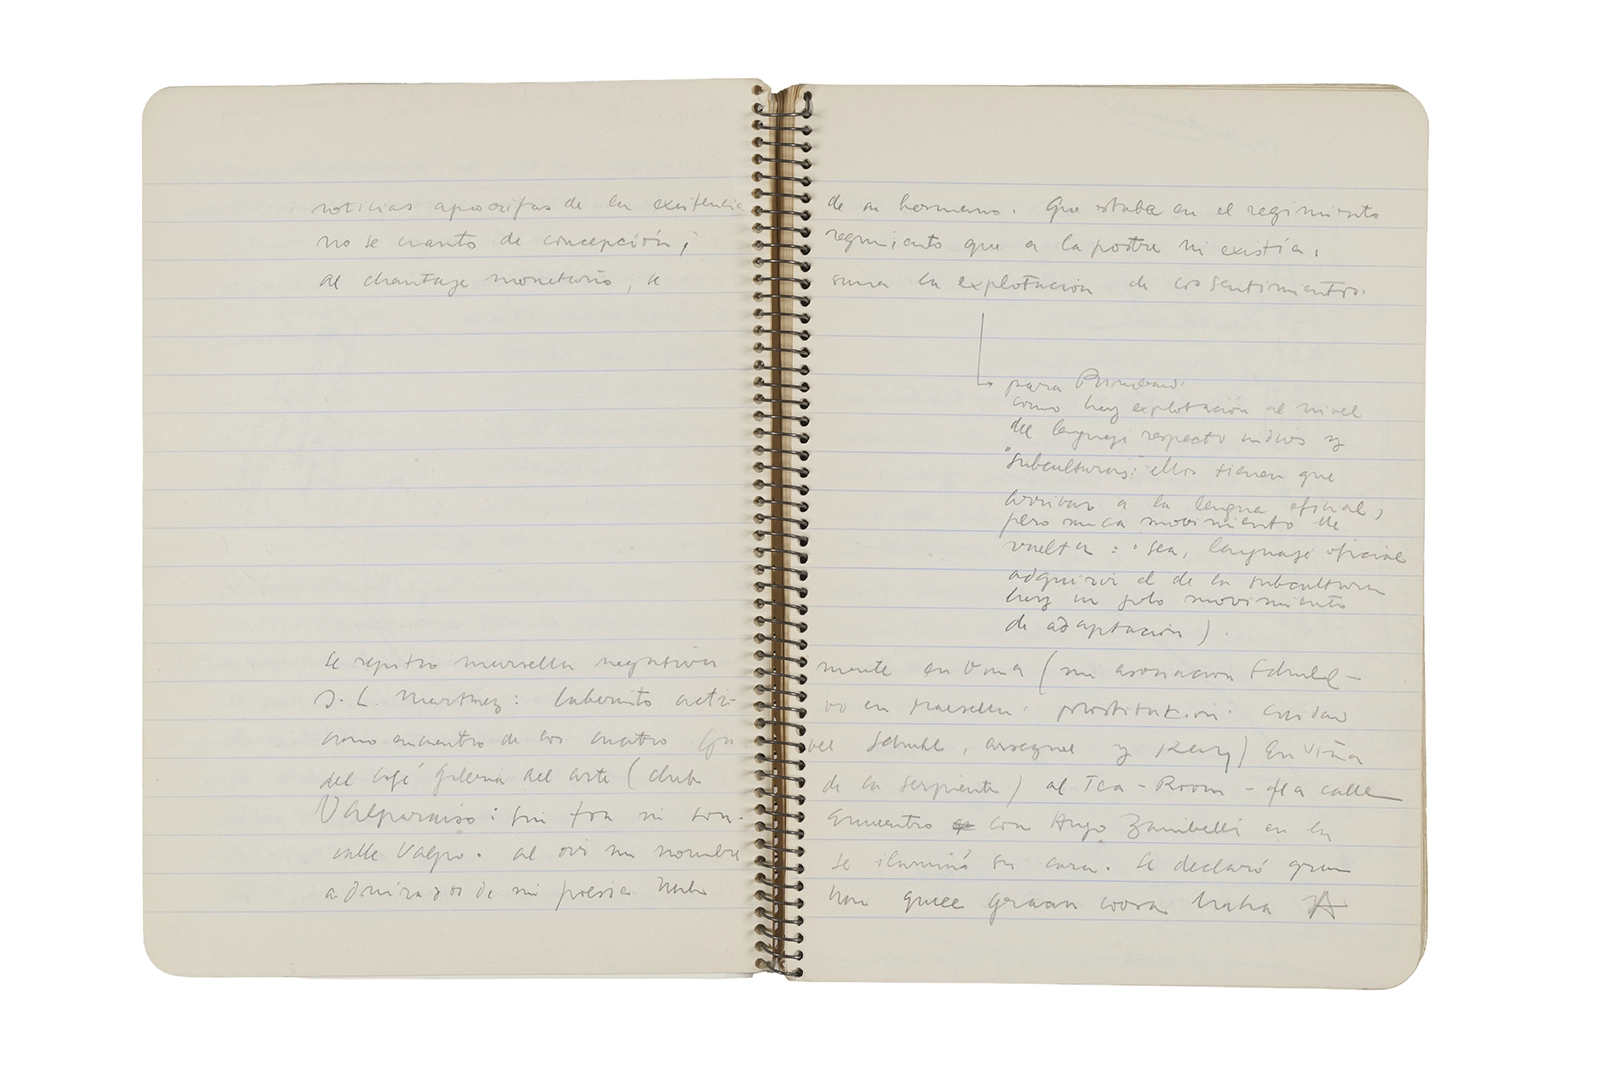 noticias apocrifas de la existencia de su hermano. Que estaba en el regimiento
no se cuanto de concepción; regimiento que a la postre ni existía.
al chantage monetario, se suma la explotacion de los sentimientos.
para
como hay explotación al nivel
del lenguaje respecto indios y
"subculturas: ellos tienen que
arribar a la lengua oficial,
pero nunca movimiento de
vuelta: o sea, lenguaje oficial
adquirir el de la subcultura
hay un solo movimiento
de adaptación).
se repitio marsella negativamente en Viña (mi asociacion Schuhl -
J. L. Martinez: laberinto en Marsella: prostitucion: ciudad
como encuentro de los cuatro Schuhl, y Kay) En Viña
del café galeria del arte (club de la serpiente) al Tea-Room - calle
Valparaiso: sin ton ni son. Encuentro con Hugo Zambelli en la
calle Valpo. al oir mi nombre se iluminó su cara. Se declaró gran
admirador de mi poesia hubo